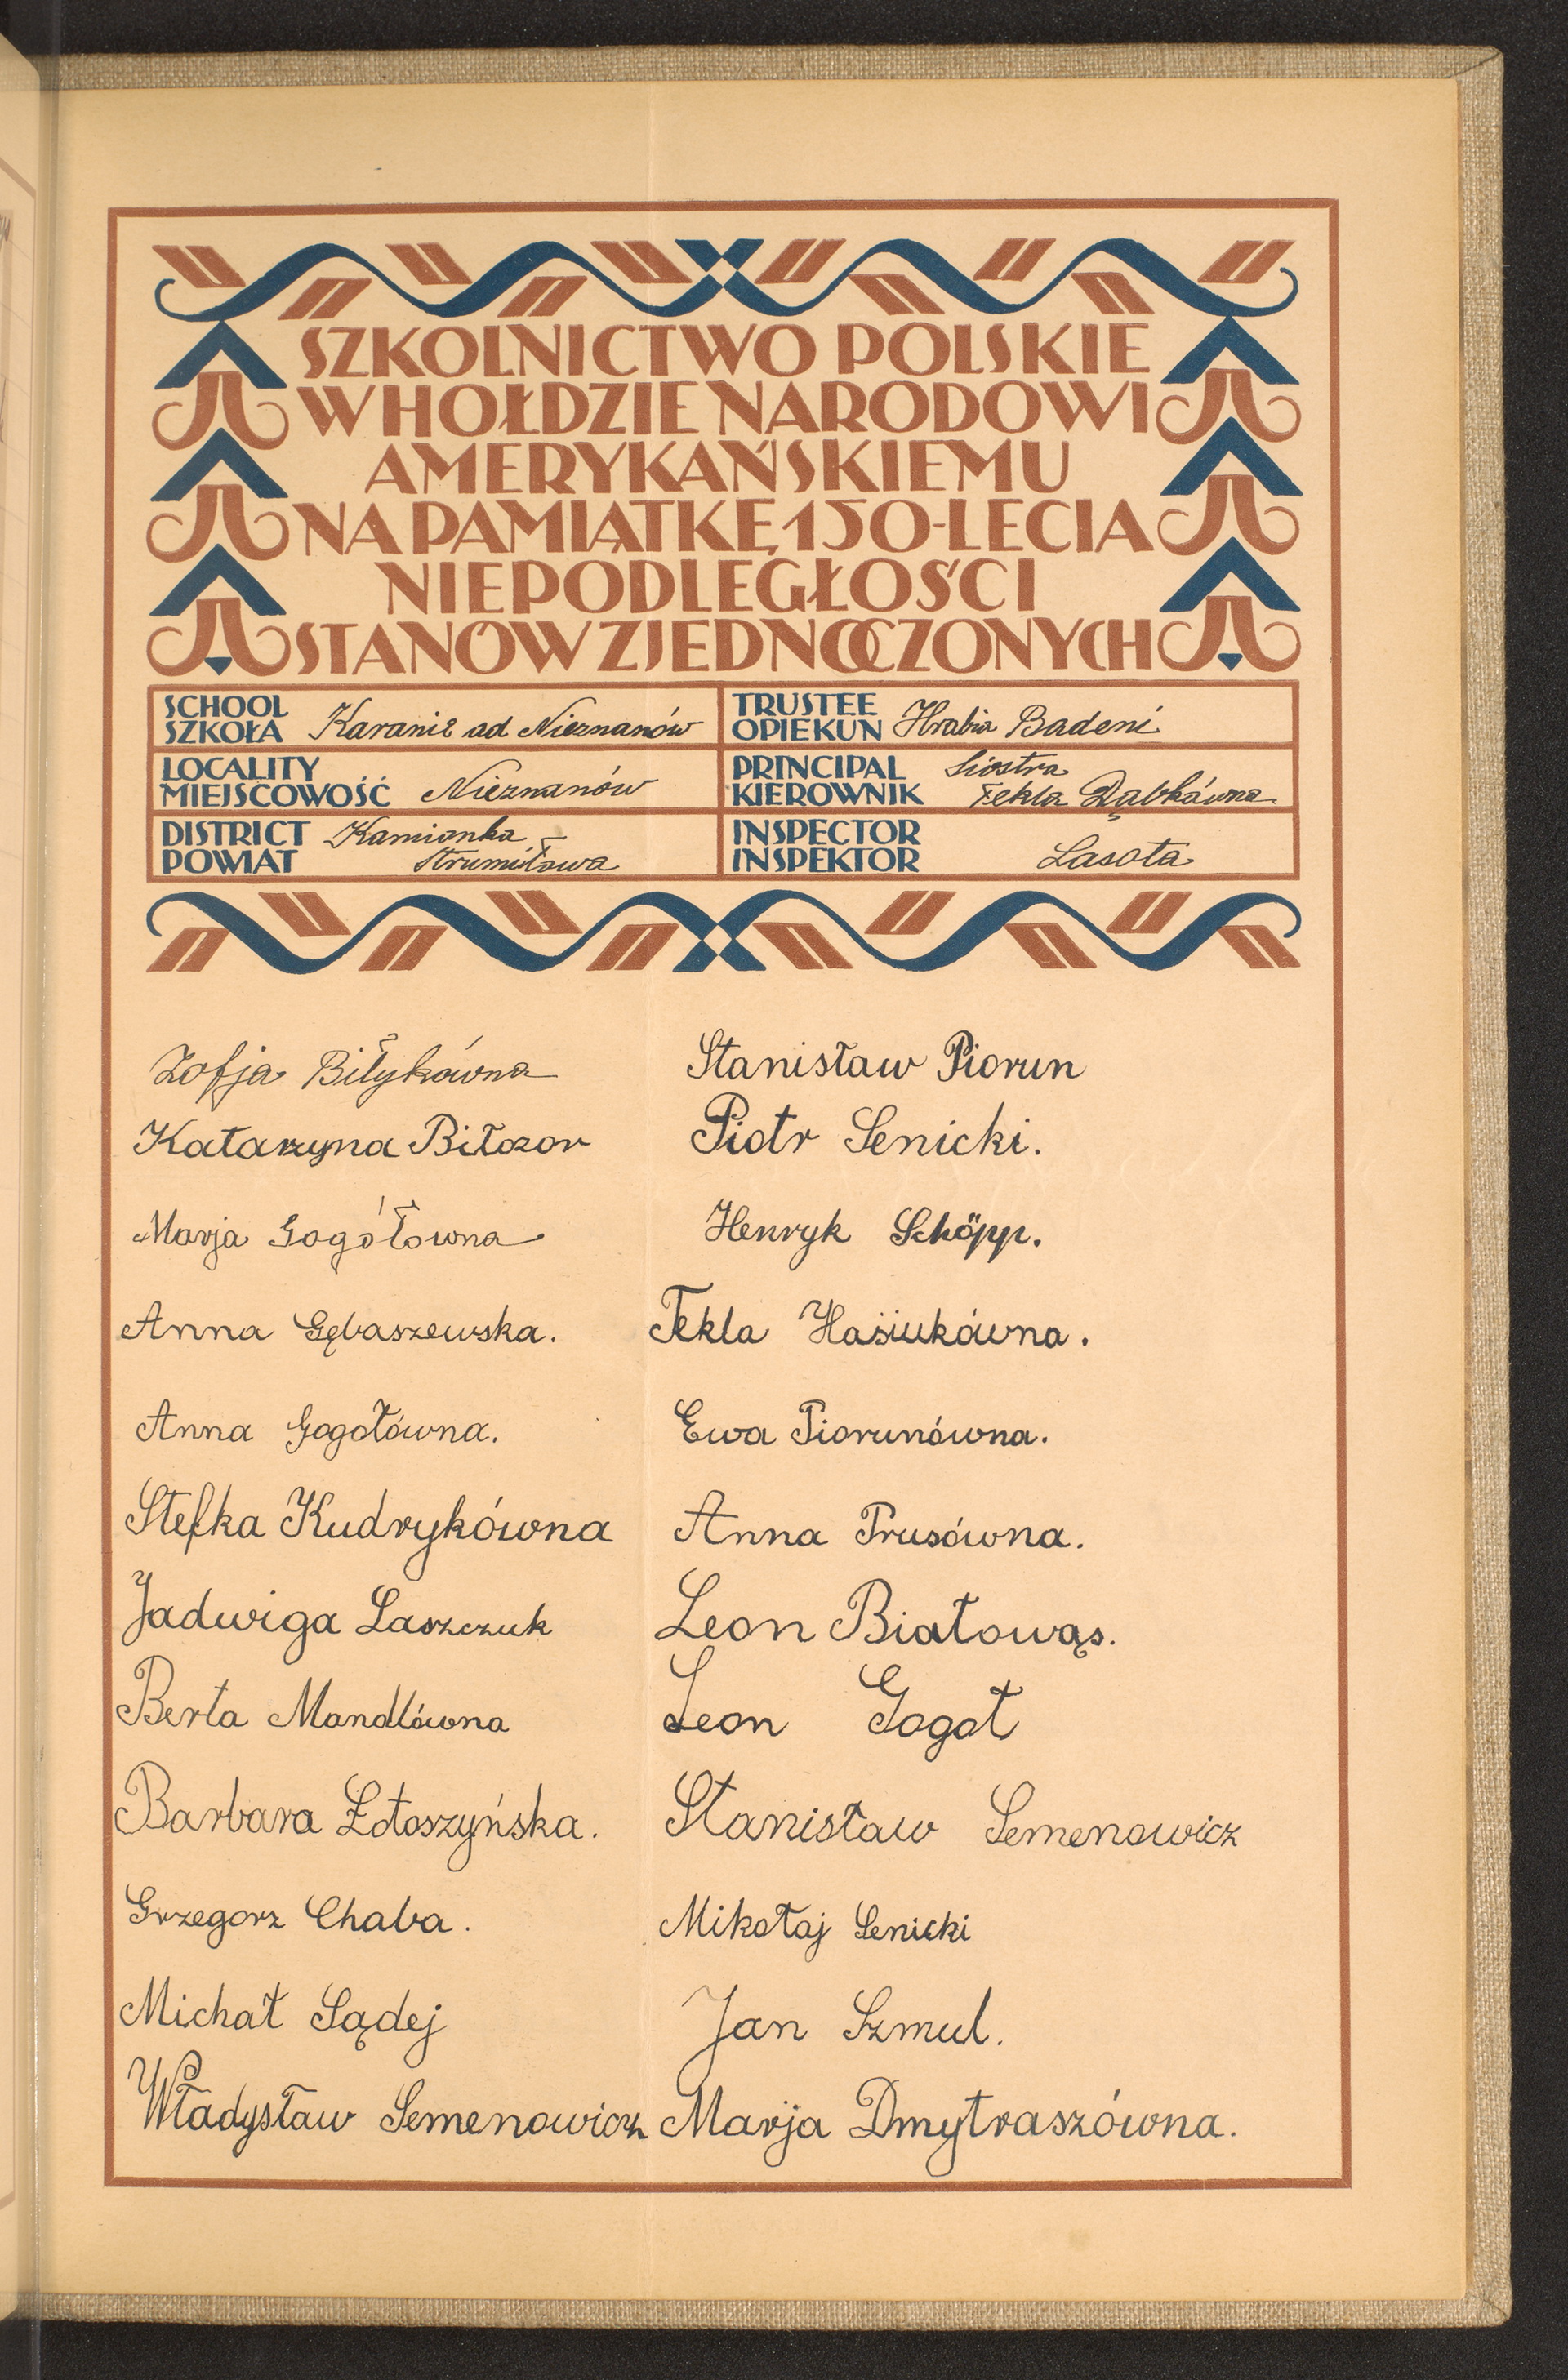 SZKOLNICTWO POLSKIE
W HOŁDZIE NARODOWI
AMERYKAŃSKIEMU
NA PAMIĄTKĘ 150-LECIA
NIEPODLEGŁOŚCI
STANÓW ZJEDNOCZONYCH
SCHOOL
SZKOŁA Karanie ad Nieznanów
TRUSTEE
OPIEKUN Hrabia Badeni
LOCALITY
MIEJSCOWOŚĆ Nieznanów
PRINCIPAL Siostra
KIEROWNIK Tekla Dąbkówna
DISTRICT Kamionka
POWIAT Strumiłowa
INSPECTOR
INSPEKTOR Lasota
Zofja Biłykówna
Katarzyna Biłozor
Marja Gogółowna
Anna Gębaszewska.
Anna Gogołówna.
Stefka Kudrykówna
Jadwiga Laszczuk
Berta Mandlówna
Barbara Złotoszyńska.
Grzegorz Chaba.
Michał Sądej
Władysław Semenowicz
Stanisław Piorun
Piotr Senicki.
Henryk Schöpp.
Tekla Hasiukówna.
Ewa Piorunówna.
Anna Prusówna.
Leon Białowąs.
Leon Gogoł
Stanisław Semenowicz
Mikołaj Senicki
Jan Szmul.
Marja Dmytraszówna.